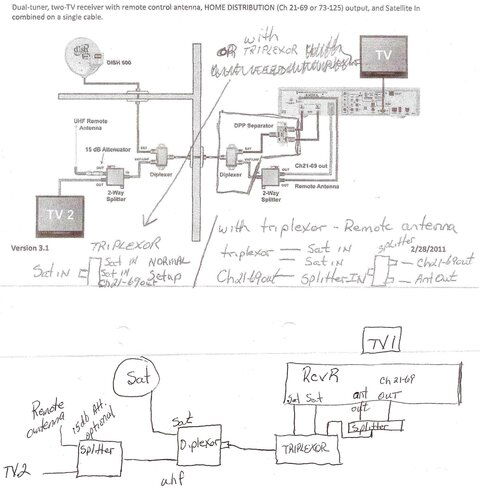 Dual-tuner, two-TV receiver with remote control antenna, HOME DISTRIBUTION (Ch 21-69 or 73-125) output, and Satellite In
combined on a single cable.
with
OR TRIPLEXOR
DISH 500
TV
UHF Remote
Antenna
15 dB Attenuator
DPP Separator
Ch21-69 out
Diplexer
Diplexer
2-Way
Splitter
2-Way
Splitter
Remote Antenna
TV 2
Version 3.1
2/28/2011
TRIPLEXOR
Sat IN
Sat IN
Sat IN
Ch21-69out
NORMAL
Setup
with triplexor - Remote antenna
triplexor — Sat IN
— Sat IN
Ch21-69out — Splitter-IN
splitter
Ch21-69out
Ant Out
TV1
RcvR
Ch 21-69
Sat Sat
ant
out
OUT
Sat
Remote
antenna
15db Att.
optional
Sat
Diplexor
uhf
Splitter
TV2
TRIPLEXOR
Splitter